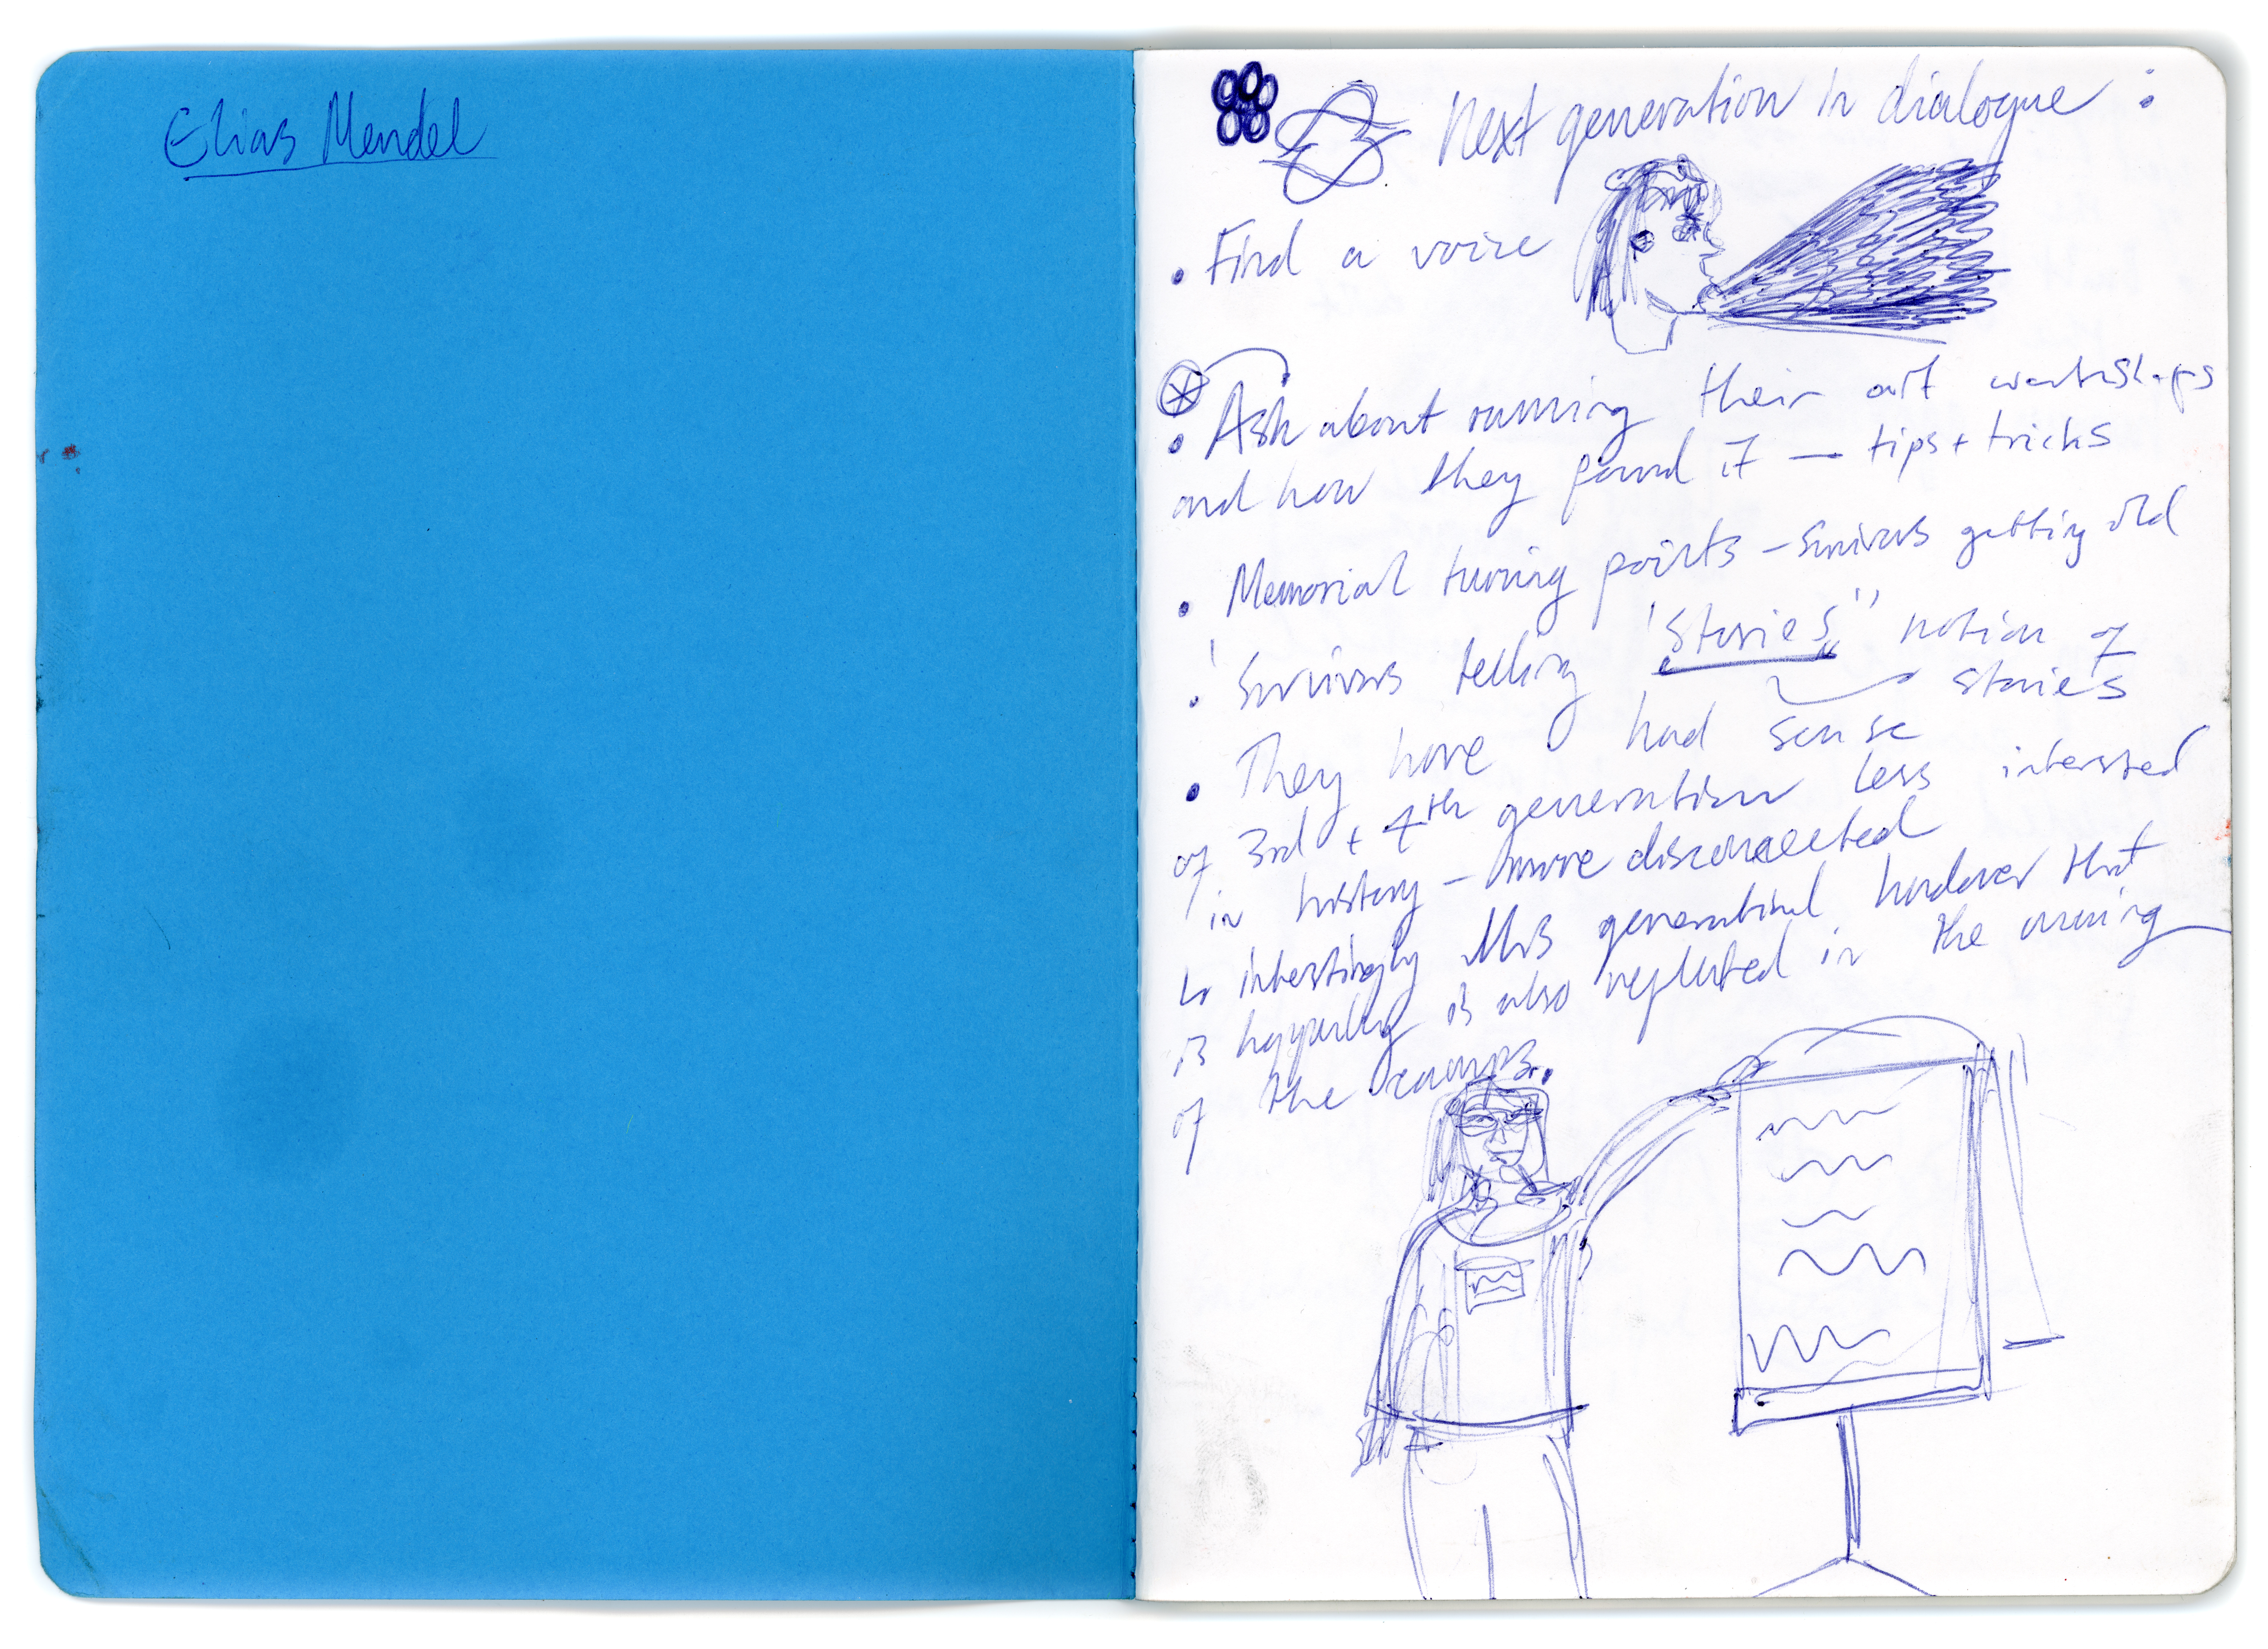 Elias Mendel
Next generation in dialogue :
• Find a voice
• Ask about running their art workshops
and how they found it — tips + tricks
• Memorial turning points – Survivors getting old
• Survivors telling "Stories" notion of
stories
• They have had sense
of 3rd + 4th generation less intersted
in history – more disconnected
↳ interstingly this generational handover that
is happening is also reflected in the running
of the camps.